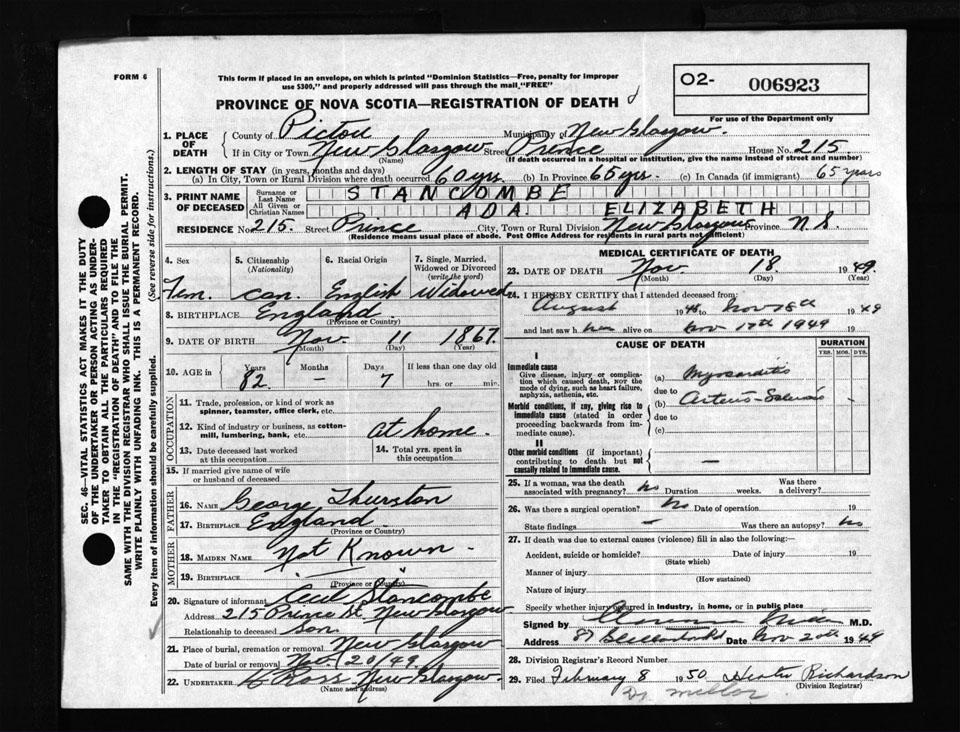 FORM 6
This form if placed in an envelope, on which is printed "Dominion Statistics—Free, penalty for improper
use $300," and properly addressed will pass through the mail "FREE"
O2- 006923
For use of the Department only
PROVINCE OF NOVA SCOTIA—REGISTRATION OF DEATH
1. PLACE OF DEATH County of Pictou Municipality of New Glasgow.
If in City or Town New Glasgow Street Prince House No. 215.
(Name) (If death occurred in a hospital or institution, give the name instead of street and number)
2. LENGTH OF STAY (in years, months and days)
(a) In City, Town or Rural Division where death occurred 60 yrs. (b) In Province 65 yrs. (c) In Canada (if immigrant) 65 years
3. PRINT NAME OF DECEASED Surname or Last Name STANCOMBE
All Given or Christian Names ADA ELIZABETH
RESIDENCE No. 215. Street Prince City, Town or Rural Division New Glasgow Province N.S.
(Residence means usual place of abode. Post Office Address for residents in rural parts not sufficient)
4. Sex 5. Citizenship (Nationality) 6. Racial Origin 7. Single, Married, Widowed or Divorced (write the word)
Fem. Can. English Widowed
8. BIRTHPLACE England
(Province or Country)
9. DATE OF BIRTH Nov 11 1867.
(Month) (Day) (Year)
10. AGE in Years Months Days If less than one day old
82 – 7 hrs. or min.
OCCUPATION
11. Trade, profession, or kind of work as
spinner, teamster, office clerk, etc.
12. Kind of industry or business, as cotton-
mill, lumbering, bank, etc. at home.
13. Date deceased last worked at this occupation 14. Total yrs. spent in this occupation
15. If married give name of wife
or husband of deceased
FATHER
16. Name George Thurston
17. Birthplace England
(Province or Country)
MOTHER
18. Maiden Name Not Known
19. Birthplace "
(Province or Country)
20. Signature of informant Cecil Stancombe
Address 215 Prince St. New Glasgow
Relationship to deceased Son
21. Place of burial, cremation or removal New Glasgow
Date of burial or removal Nov 20/49
22. UNDERTAKER Ross New Glasgow.
(Name and address)
MEDICAL CERTIFICATE OF DEATH
23. DATE OF DEATH Nov 18. 1949.
(Month) (Day)
24. I HEREBY CERTIFY that I attended deceased from:
August 1948 to Nov 18th 1949
and last saw her alive on Nov 17th 1949 19
CAUSE OF DEATH DURATION
YRS. MOS. DYS.
I
Immediate cause
Give disease, injury or complica-
tion which caused death, NOT the
mode of dying, such as heart failure,
asphyxia, asthenia, etc.
(a) Myocarditis
due to
Morbid conditions, if any, giving rise to
immediate cause (stated in order
proceeding backwards from im-
mediate cause).
(b) Arterio-Sclerosis
due to
(c)
II
Other morbid conditions (if important)
contributing to death but not
causally related to immediate cause. –
25. If a woman, was the death
associated with pregnancy? no Duration weeks. Was there a delivery?
26. Was there a surgical operation? No Date of operation 19
State findings – Was there an autopsy? no
27. If death was due to external causes (violence) fill in also the following:
Accident, suicide or homicide? Date of injury 19
(State which)
Manner of injury
(How sustained)
Nature of injury
Specify whether injury occurred in industry, in home, or in public place
Signed by M.D.
Address Date Nov 20th 1949
28. Division Registrar's Record Number
29. Filed February 8 1950 Richardson
(Division Registrar)
Dr. Miller
SEC. 46—VITAL STATISTICS ACT MAKES IT THE DUTY
OF THE UNDERTAKER OR PERSON ACTING AS UNDER-
TAKER TO OBTAIN ALL THE PARTICULARS REQUIRED
IN THE "REGISTRATION OF DEATH" AND TO FILE THE
SAME WITH THE DIVISION REGISTRAR WHO SHALL ISSUE THE BURIAL PERMIT.
WRITE PLAINLY WITH UNFADING INK. THIS IS A PERMANENT RECORD.
Every item of information should be carefully supplied. (See reverse side for instructions.)